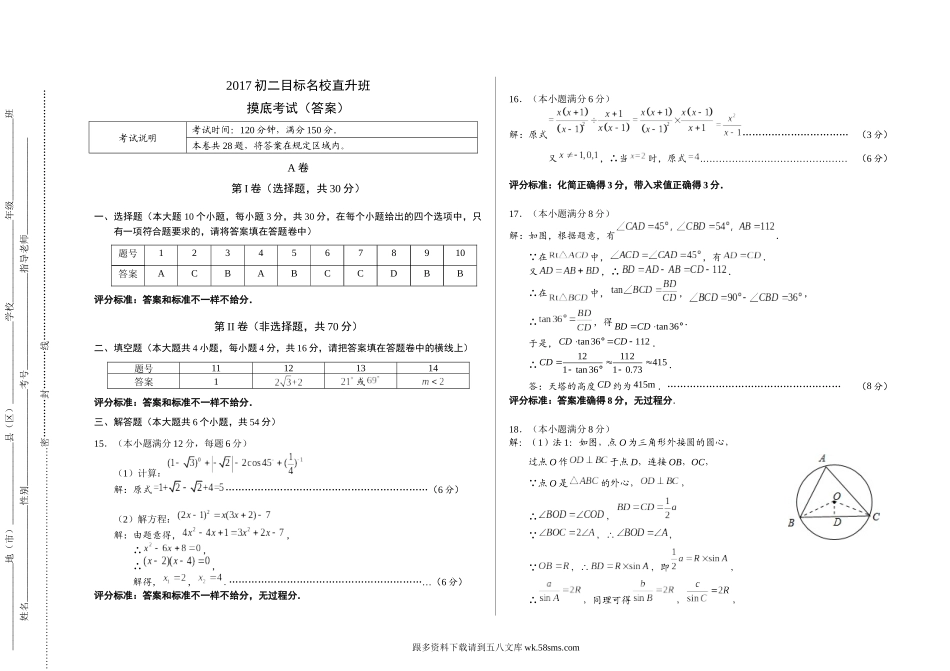 2017 初二目标名校直升班
摸底考试（答案）
考试说明
考试时间：120 分钟，满分 150 分.
本卷共 28 题，将答案在规定区域内.
A 卷
第 I 卷（选择题，共 30 分）
一、选择题（本大题 10 个小题，每小题 3 分，共 30 分，在每个小题给出的四个选项中，只
有一项符合题要求的，请将答案填在答题卷中）
题号 1 2 3 4 5 6 7 8 9 10
答案 A C B A B C C D B B
评分标准：答案和标准不一样不给分.
第 II 卷（非选择题，共 70 分）
二、填空题（本大题共 4 小题，每小题 4 分，共 16 分，请把答案填在答题卷中的横线上）
题号 11 12 13 14
答案 1 2√3+2 21° 或 69° m＜2
评分标准：答案和标准不一样不给分.
三、解答题（本大题共 6 个小题，共 54 分）
15.（本小题满分 12 分，每题 6 分）
（1）计算：(1- √3)⁰+|- √2|- 2cos45°+(1/4)⁻¹
解：原式=1+√2 - √2+4=5……………………（6 分）
（2）解方程：(2x- 1)²=x(3x+2)- 7
解：由题意得，4x²- 4x+1=3x²+2x- 7，
∴x²- 6x+8=0，
∴(x- 2)(x- 4)=0，
解得，x₁=2，x₂=4.……………………（6 分）
评分标准：答案和标准不一样不给分，无过程分.
16.（本小题满分 6 分）
解：原式=x(x+1)/(x- 1)²÷(x+1)/x(x- 1)=x(x+1)/(x- 1)²×x(x- 1)/(x+1)=x²/(x- 1)……………………（3 分）
又x≠- 1,0,1，∴当x=2时，原式=4……………………（6 分）
评分标准：化简正确得 3 分，带入求值正确得 3 分.
17.（本小题满分 8 分）
解：如图，根据题意，有∠CAD=45°，∠CBD=54°，AB=112.
∵在Rt△ACD中，∠ACD=∠CAD=45°，有AD=CD.
又AD=AB+BD，∴BD=AD- AB=CD- 112.
∴在Rt△BCD中，tan∠BCD=BD/CD，∠BCD=90°- ∠CBD=36°，
∴tan36°=BD/CD，得BD=CD·tan36°.
于是，CD·tan36°=CD- 112.
∴CD=112/(1- tan36°)≈112/(1- 0.73)≈415.
答：天塔的高度CD约为415m.……………………（8 分）
评分标准：答案准确得 8 分，无过程分.
18.（本小题满分 8 分）
解：（1）法 1：如图，点 O 为三角形外接圆的圆心，
过点 O 作OD⊥BC于点 D，连接 OB，OC，
∵点 O 是△ABC的外心，OD⊥BC，
∴∠BOD=∠COD，BD=CD=1/2a
∵∠BOC=2∠A，∴∠BOD=∠A，
∵OB=R，∴BD=R×sinA，即1/2a=R×sinA，
∴a/sinA=2R，同理可得b/sinB=2R，c/sinC=2R，
A
O
B
D
C
姓名 性别 考号 指导老师
地（市） 县（区） 学校 年级 班
密 封 线
跟多资料下载请到五八文库 wk.58sms.com